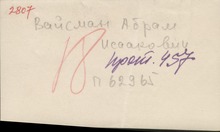 2807
Вайсман Абрам
Исаакович
прот. 457
П 62365